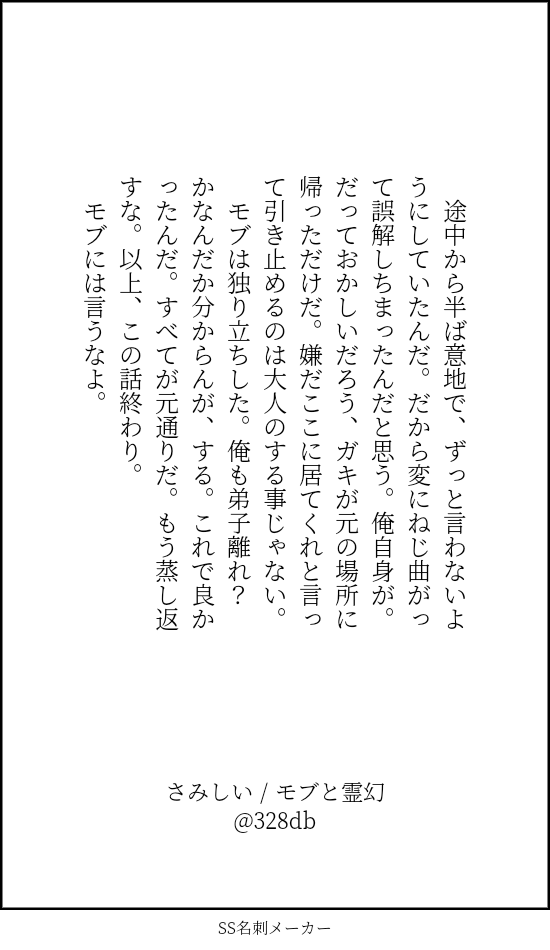 途中から半ば意地で、ずっと言わないよ
うにしていたんだ。だから変にねじ曲がっ
て誤解しちまったんだと思う。俺自身が。
だっておかしいだろう、ガキが元の場所に
帰っただけだ。嫌だここに居てくれと言っ
て引き止めるのは大人のする事じゃない。
　モブは独り立ちした。俺も弟子離れ？
かなんだか分からんが、する。これで良か
ったんだ。すべてが元通りだ。もう蒸し返
すな。以上、この話終わり。
　モブには言うなよ。
さみしい / モブと霊幻
@328db
SS名刺メーカー